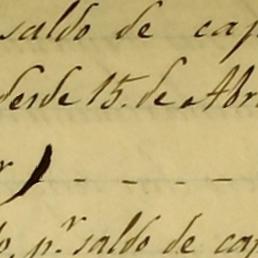 saldo de cap
desde 15. de Abr
r) - - - -
o, p.r saldo de cap